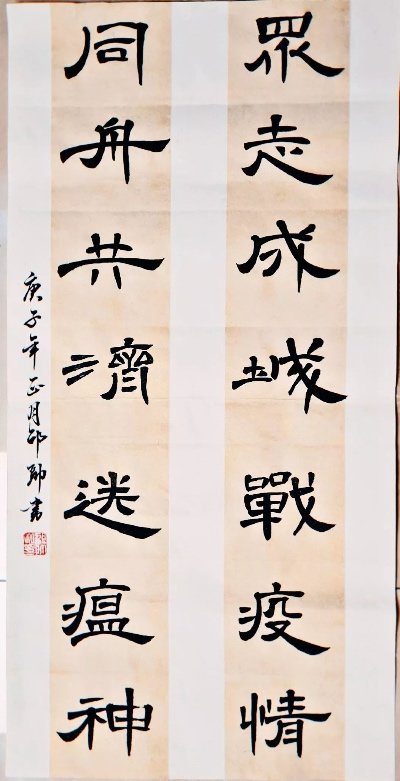 眾志成城戰疫情
同舟共濟送瘟神
庚子年正月邵書